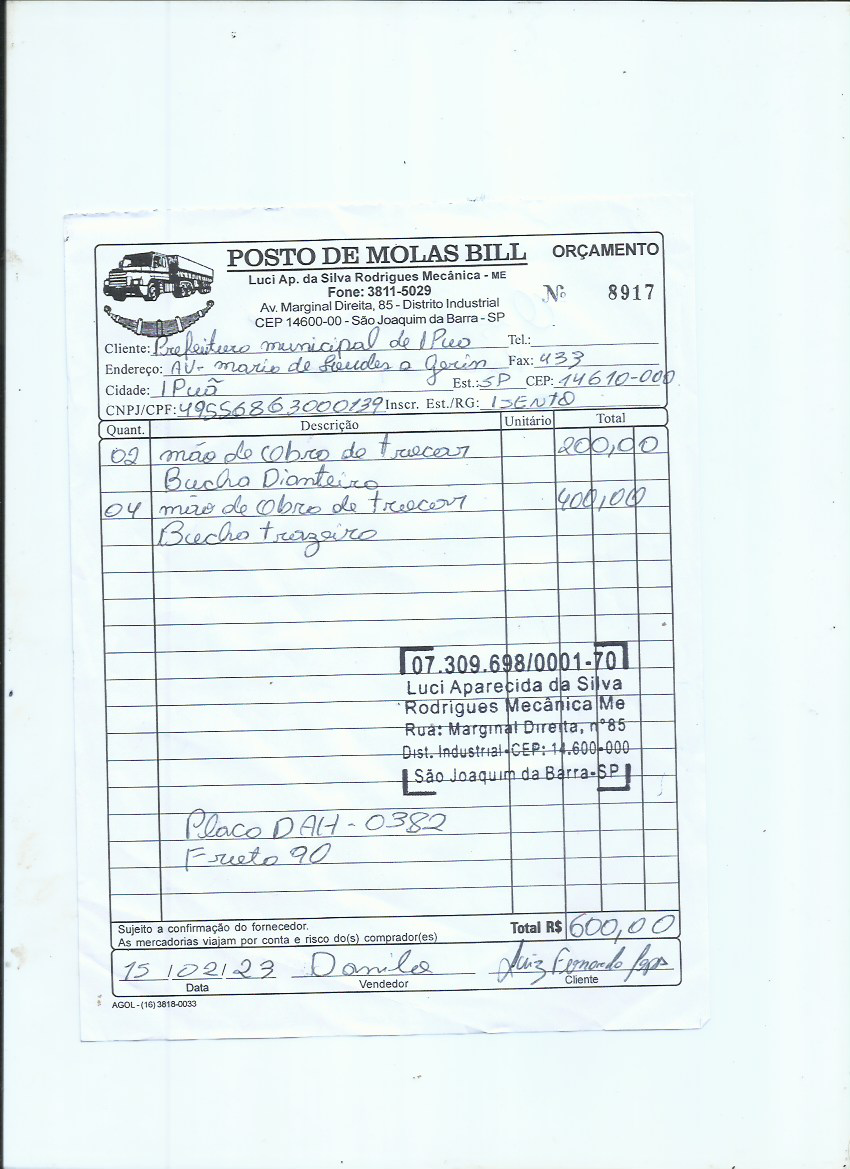 POSTO DE MOLAS BILL
ORÇAMENTO
Luci Ap. da Silva Rodrigues Mecânica - ME
Fone: 3811-5029
Av. Marginal Direita, 85 - Distrito Industrial
CEP 14600-00 - São Joaquim da Barra - SP
Nº 8917
Cliente: Prefeitura municipal de IPuã Tel.:
Endereço: AV- maria de Lourdes a Gerin Fax: 433
Cidade: IPuã Est.: SP CEP: 14610-000
CNPJ/CPF: 49556863000139 Inscr. Est./RG: ISENTO
Quant. Descrição Unitário Total
02 mão de obra de trocar 200,00
Bucha Dianteira
04 mão de obra de trocar 400,00
Bucha trazeira
07.309.698/0001-70
Luci Aparecida da Silva
Rodrigues Mecânica Me
Rua: Marginal Direita, nº85
Dist. Industrial-CEP: 14.600-000
São Joaquim da Barra-SP
Placa DAH-0382
Frota 90
Sujeito a confirmação do fornecedor.
As mercadorias viajam por conta e risco do(s) comprador(es)
Total R$ 600,00
15/02/23 Danilo Luiz Fernando
Data Vendedor Cliente
AGOL - (16) 3818-0033